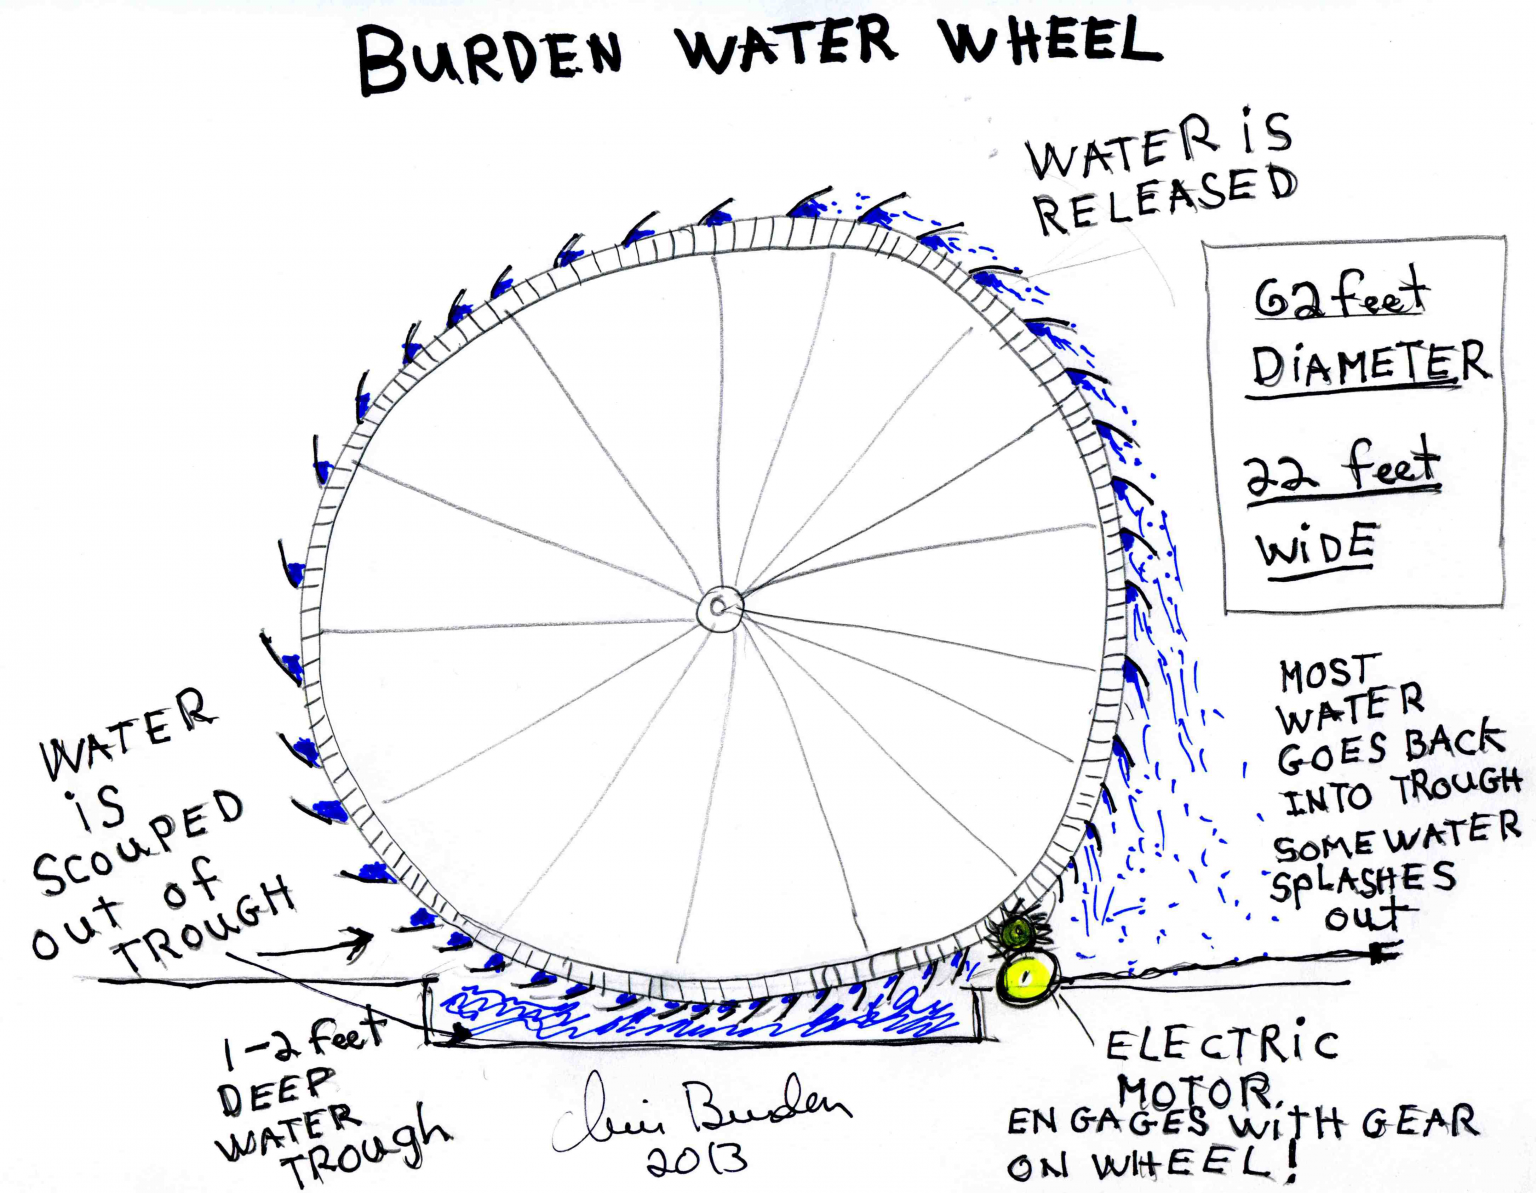 BURDEN WATER WHEEL
WATER iS
RELEASED
62 feet
DiAMETER
22 feet
WiDE
MOST
WATER
GOES BACK
INTO TROUGH
SOME WATER
SPLASHES
OUT
WATER
iS
SCOUPED
OUT OF
TROUGH
1-2 feet
DEEP
WATER
TROUgh
Chris Burden
2013
ELECTRiC
MOTOR.
ENGAGES WiTH GEAR
ON WHEEL!